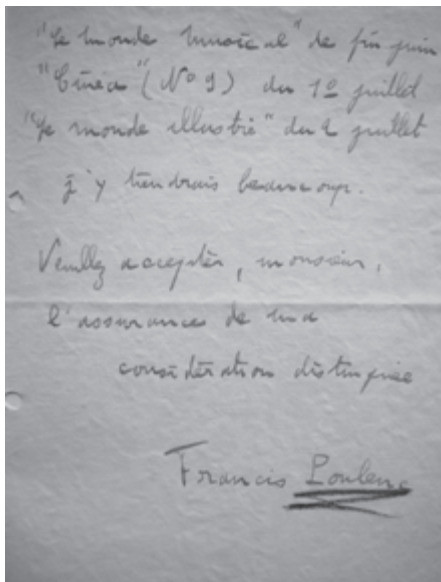 "Le monde musical" de fin juin
"Cinéa" (No 9) du 1o juillet
"Le monde illustré" du 2 juillet
j'y tiendrais beaucoup.
Veuillez accepter, monsieur,
l'assurances de ma
considération distinguée
Francis Poulenc